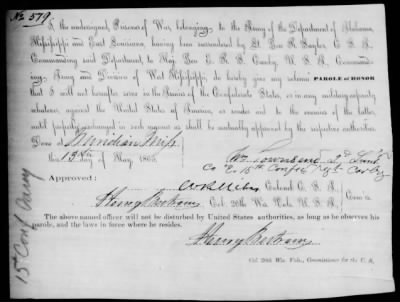 No. 579
I, the undersigned, Prisoner of War, belonging to the Army of the Department of Alabama,
Mississippi and East Louisiana, having been surrendered by Lt. Gen R. Taylor, C. S. A.,
Commanding said Department, to Maj. Gen. E. R. S. Canby, U. S. A., Command-
ing Army and Division of West Mississippi, do hereby give my solemn PAROLE of HONOR
that I will not hereafter serve in the Armies of the Confederate States, or in any military capacity
whatever, against the United States of America, or render aid to the enemies of the latter,
until properly exchanged in such manner as shall be mutually approved by the respective authorities.
Done at Meridian Miss.
this 13th of May, 1865.
Wm Townsend 2d Lieut
Co "E" 15th Confed Regt Cavlry
Approved:
Colonel C. S. A.
Henry Bertram Col. 20th Wis. Vols. U. S. A.
Com'rs
The above named officer will not be disturbed by United States authorities, as long as he observes his
parole, and the laws in force where he resides.
Henry Bertram
Col. 20th Wis. Vols., Commissioner for the U. S.
15 Conf Cavry